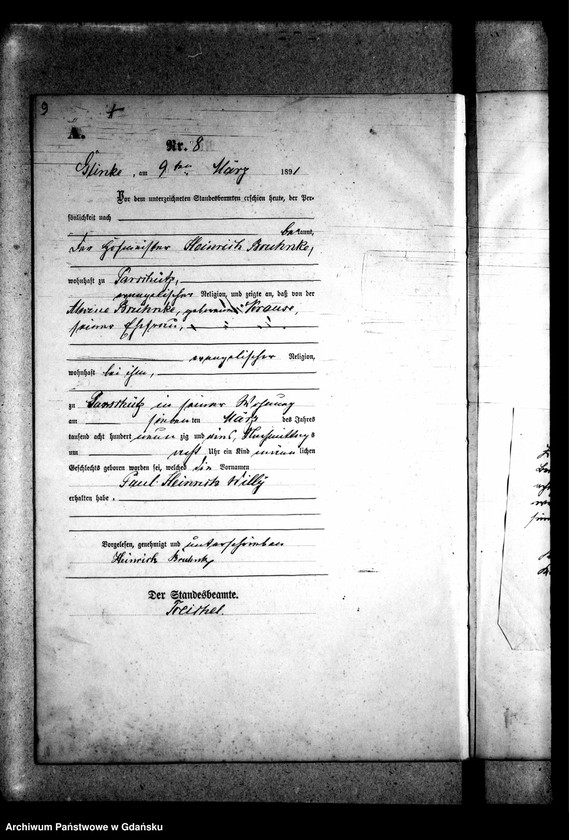 9
A.
Nr. 8
Glinke, am 9ten März 1891
Vor dem unterzeichneten Standesbeamten erschien heute, der Per-
sönlichkeit nach
bekannt,
der Hofmeister Heinrich
wohnhaft zu
evangelischer Religion, und zeigte an, daß von der
geborenen Krause,
seiner Ehefrau,
evangelischer Religion,
wohnhaft bei ihm,
zu in seiner Wohnung
am siebenten März des Jahres
tausend acht hundert neun zig und eins, Nachmittags
um acht Uhr ein Kind männlichen
Geschlechts geboren worden sei, welches die Vornamen
Paul Heinrich Willy
erhalten habe.
Vorgelesen, genehmigt und unterschrieben
Heinrich
Der Standesbeamte.
Treichel.
Archiwum Państwowe w Gdańsku